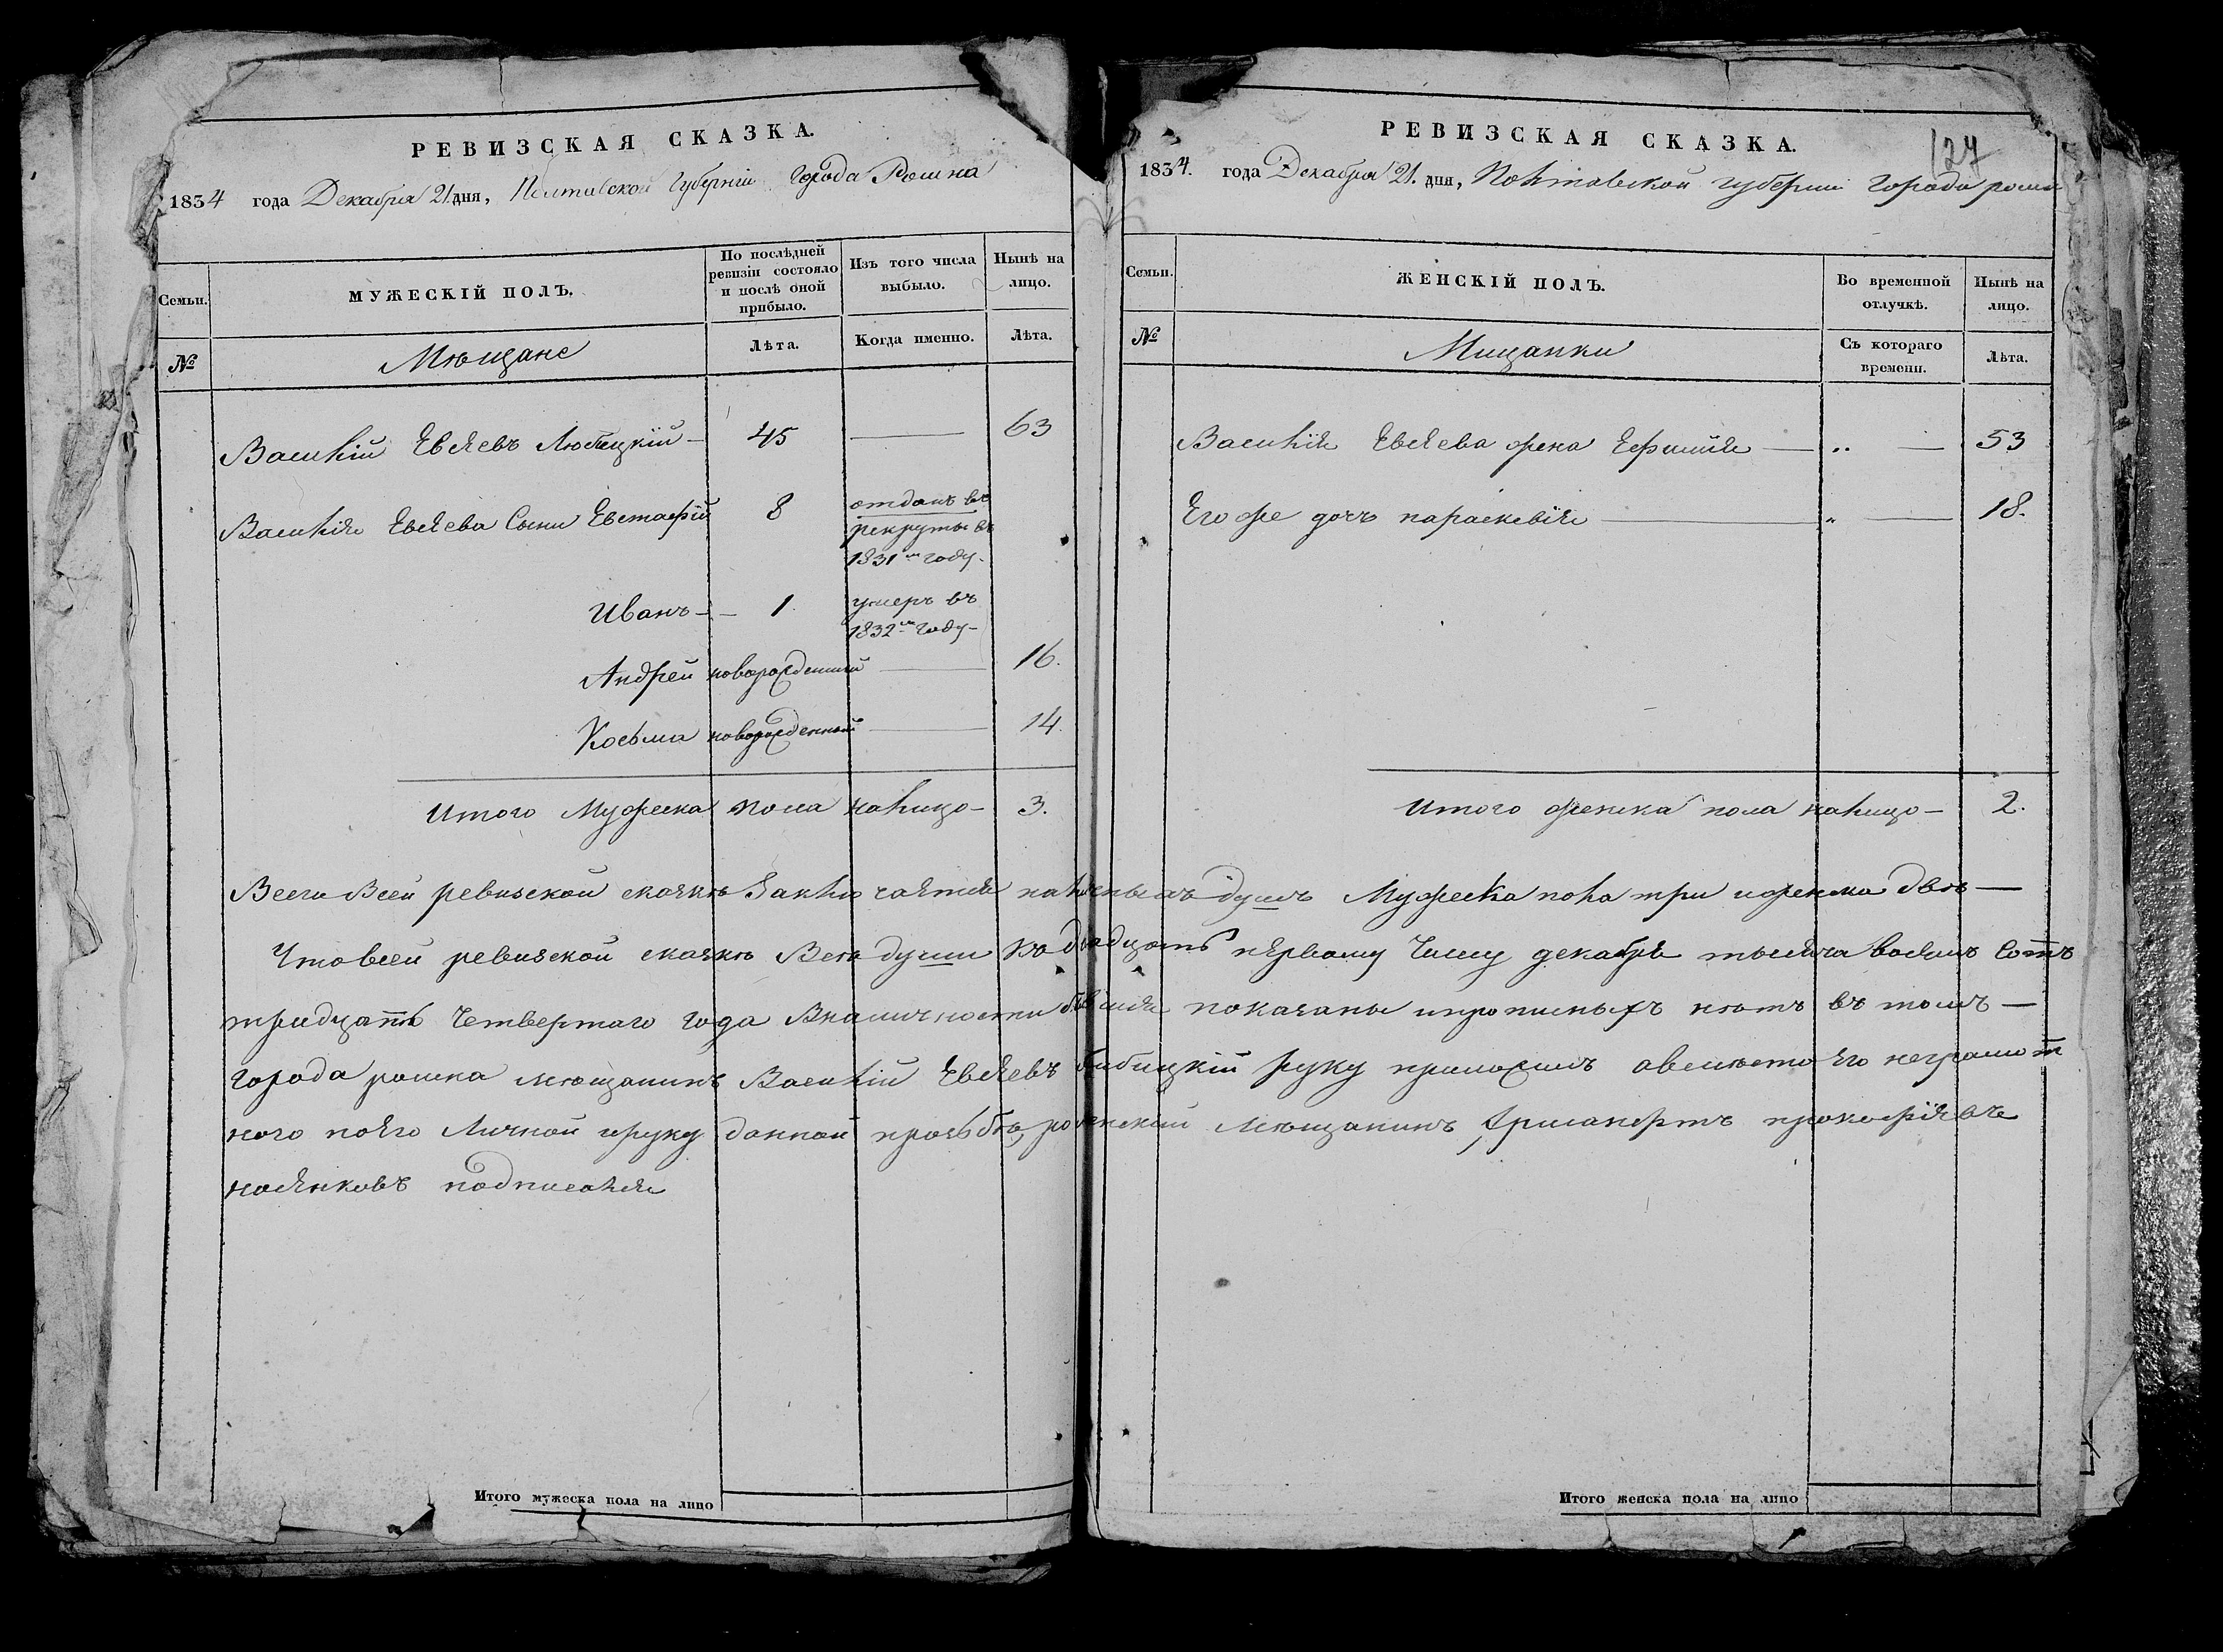 РЕВИЗСКАЯ СКАЗКА.
1834 года Декабря 21 дня, Полтавской Губернiи Города Ромна
Семьи.
МУЖЕСКIЙ ПОЛЪ.
По послѣдней ревизiи состояло и послѣ оной прибыло.
Изъ того числа выбыло.
Нынѣ на лицо.
№
Мѣщане
Лѣта.
Когда именно.
Лѣта.
Василiй Евсѣевъ 45 — 63
Василiя Евсѣева Сыны Евстафiй 8 отданъ въ
рекруты въ
1831м году.
Иванъ — 1 умеръ въ
1832м году
Андрей новорожденный — 16.
Косьма новорожденный — 14.
Итого Мужеска пола налицо — 3.
РЕВИЗСКАЯ СКАЗКА.
127
1834. года Декабря 21. дня, Полтавской губернiи Города ромна
Семьи.
ЖЕНСКIЙ ПОЛЪ.
Во временной отлучкѣ.
Нынѣ на лицо.
№
Мищанки
Съ котораго времени.
Лѣта.
Василiя Евсѣева жена Ефимiя — „ — 53
Его же дочь параскевiя — „ — 18.
Итого женска пола налицо — 2.
Всего Всей ревизской сказкѣ наличныхъ душъ Мужеска пола три и женска двѣ —
Что всей ревизской сказкѣ Всѣ души къ двадцать первому Числу декабря тысяча восемь Сотъ
тридцать Четвертаго года Вналичности показаны и прописныхъ нѣтъ въ томъ —
города ромна мѣщанинъ Василiй Евсѣевъ руку приложилъ а вмѣсто Его неграмот
ного поЕго Личной ируку данной прозьбѣ, роменскiй мѣщанинъ прокофiевъ
подписался
Итого мужеска пола на лицо
Итого женска пола на лицо